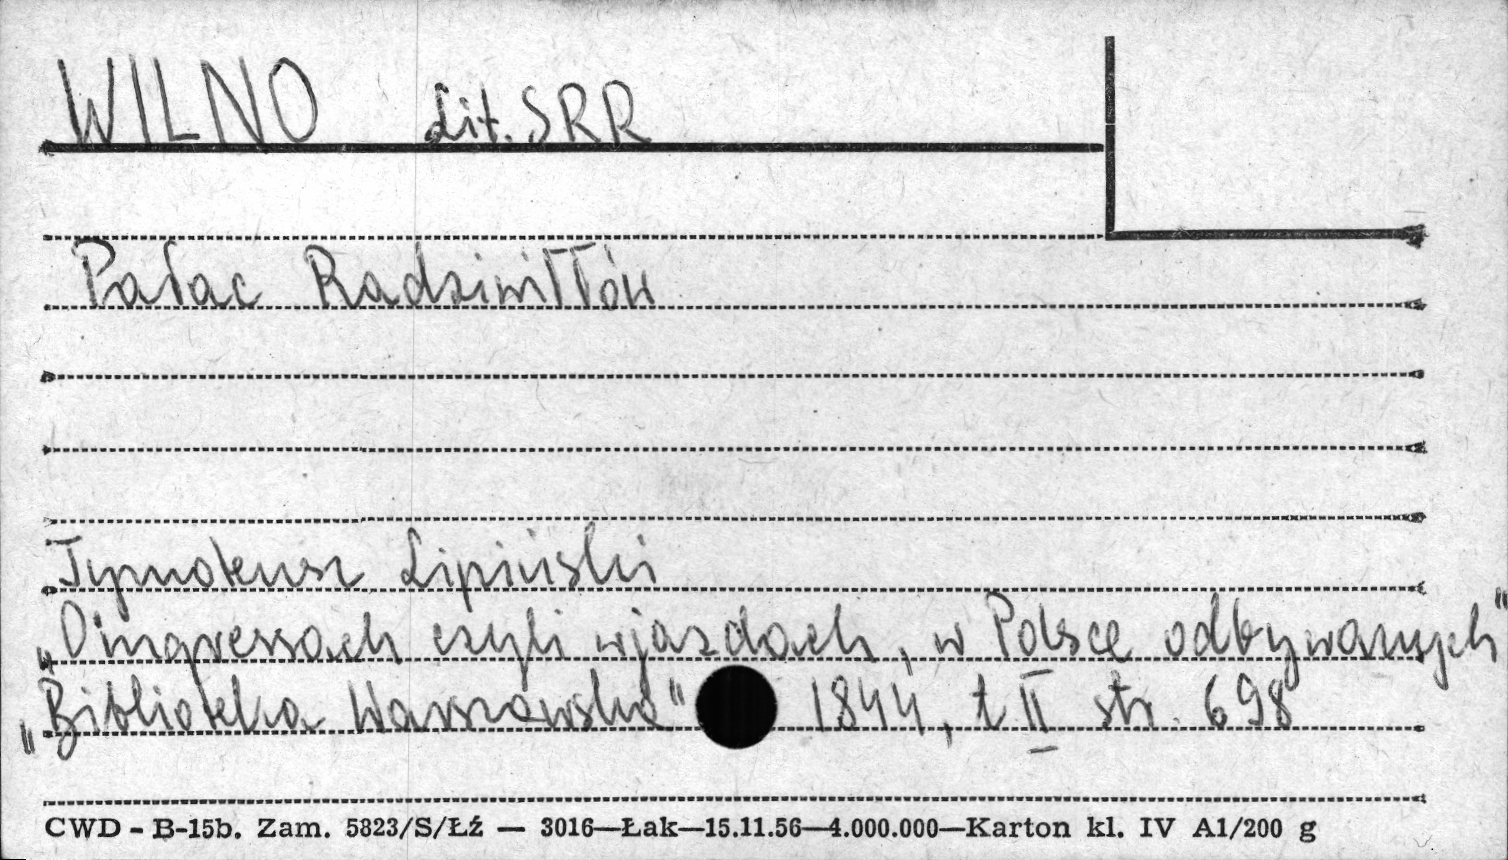 WILNO Lit. SRR
Pałac Radziwiłłów
Tymoteusz Lipiński
„O ingressach czyli wjazdach, w Polsce odbywanych"
„Biblioteka Warszawska" 1844, t. II str. 698
CWD - B-15b. Zam. 5823/S/Łź — 3016—Łak—15.11.56—4.000.000—Karton kl. IV A1/200 g